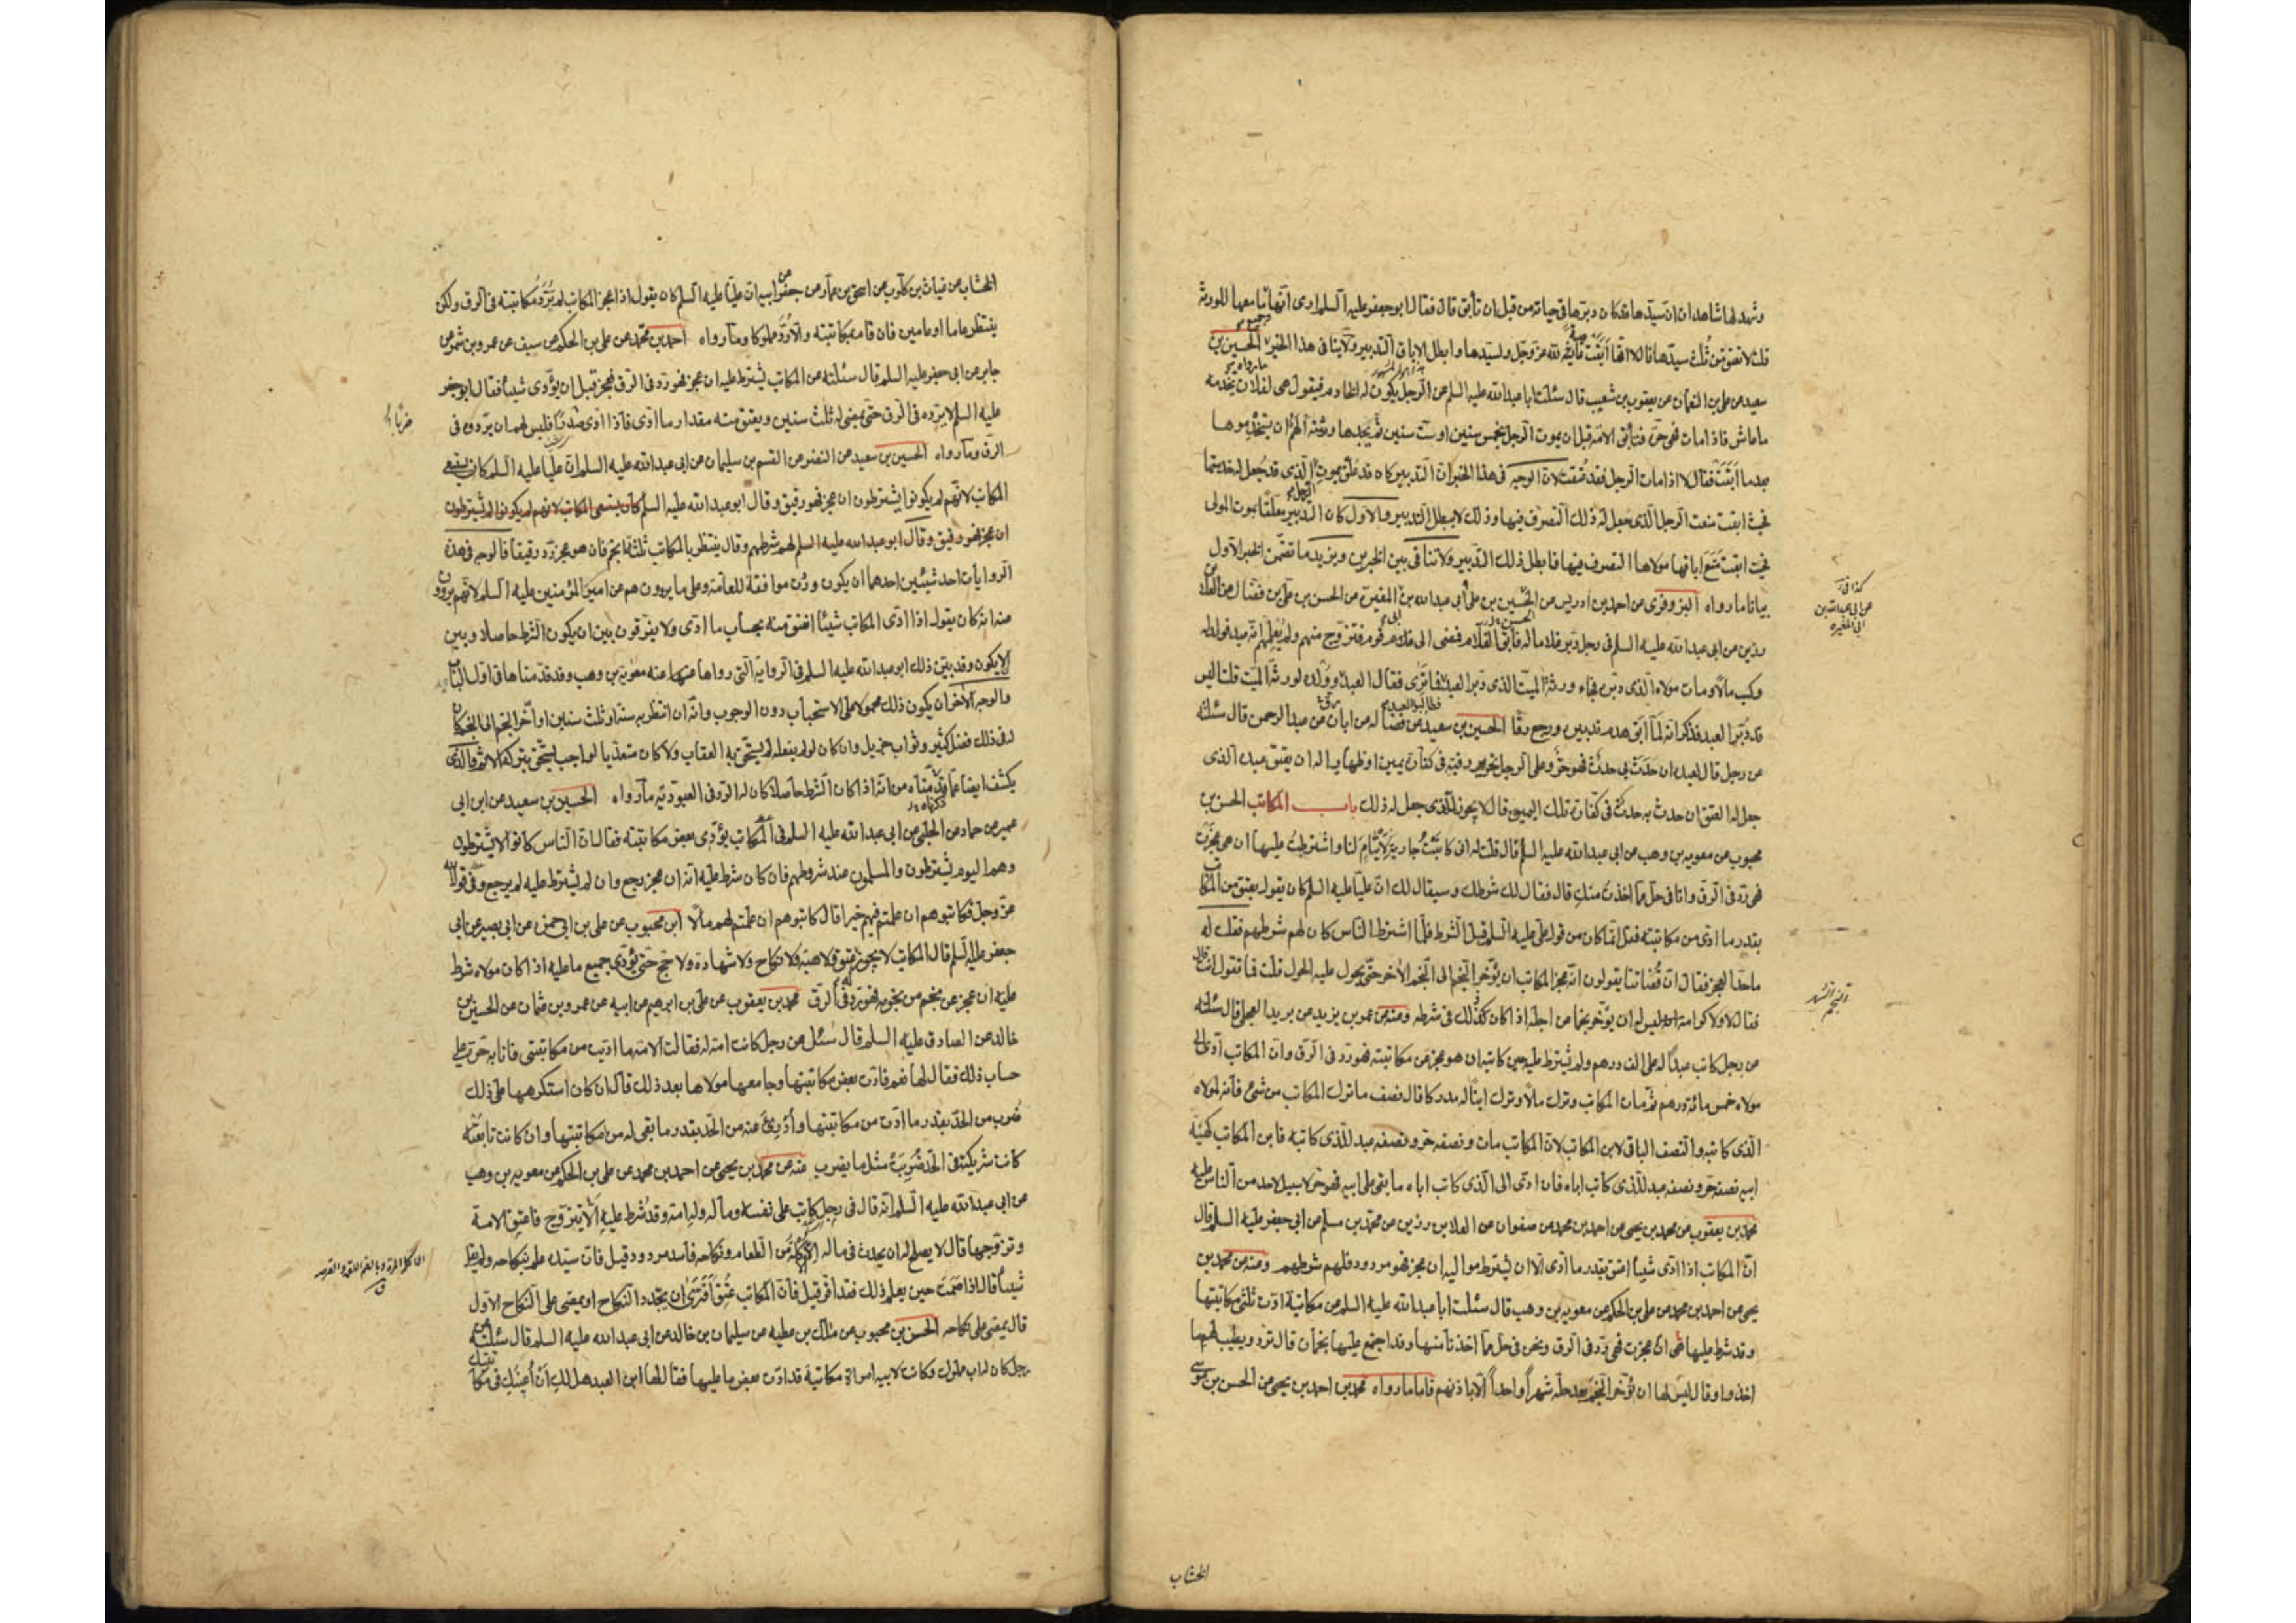 وشهد لها شاهدان ان سيّدها قد كان دبّرها فى حياته من قبل ان تأبق قال فقال ابو جعفر عليه السلم ارى انّها ثنا معها للورثة
قلت لا تعتق من ثلث سيدّها قال لا انّها أبقت عاصية لله عز وجل ولسيّدها وابطل الاباق التدبير ولا ينافى هذا الخبر الحسين بن
سعيد عن على بن النعمان عن يعقوب بن شعيب قال سئلت ابا عبد الله عليه السلم عن الرجل يكون له الخادم فيقول هى لفلان تخدمه
ما عاش فاذا مات فهى حرّة فتأبق الامة قبل ان يموت الرجل بخمس سنين او ست سنين ثم يجدها ورثته ألهم ان يستخدموها
بعد ما أبقت فقال لا اذا مات الرجل فقد عتقت لان الوجه فى هذا الخبر ان التدبير كان قد علّق بموت الذى قد جعل له خدمتها
فحيث ابقت منعت الرجل الذى جعل له ذلك التصرف فيها وذلك لا يبطل التدبير والاول كان التدبير معلّقا بموت المولى
فحيث ابقت منع اباقها مولاها التصرف فيها فابطل ذلك التدبير ولا تنافى بين الخبرين ويزيد ما تضمّن الخبر الاول
بيانا ما رواه البزوفرى عن احمد بن ادريس عن الحسين بن على أبى عبد الله بن المغيرة عن الحسن بن على بن فضّال عن العلا بن
رزين عن ابى عبد الله عليه السلم فى رجل دبّر غلاما له فأبق الغلام فمضى الى قوم فتزوّج منهم ولم يعلمهم انّه عبد فولد له
وكسب مالا ومات مولاه الذى دبّره فجاء ورثة الميت الذى دبّر العبد فما ترى فقال العبد وولده لورثة الميّت قلت اليس
قد دبّر العبد فذكر انه لمّا أبق هدم تدبيره ورجع رقّا الحسين بن سعيد عن فضالة عن ابان عن عبد الرحمن قال سئلته
عن رجل قال لعبده ان حدث بى حدث فهو حرّ وعلى الرجل تحرير رقبة فى كفّارة يمين او ظهار اله ان يعتق عبده الذى
جعل له العتق ان حدث به حدث فى كفّارة تلك اليمين قال لا يجوز للذى جعل له ذلك باب المكاتب الحسن بن
محبوب عن معوية بن وهب عن ابى عبد الله عليه السلم قال قلت له انى كاتبت جارية لأيتام لنا واشترطت عليها ان هى عجزت
فهى ردّ فى الرق وانا فى حلّ مما اخذت منك قال فقال لك شرطك وسيقال لك ان عليا عليه السلم كان يقول يعتق من المكاتب
بقدر ما ادّى من مكاتبته فقل انما كان من قول على عليه السلم قبل الشرط فلمّا اشترط الناس كان لهم شرطهم فقلت له
ما حدّ العجز فقال ان قضاتنا يقولون انّ عجز المكاتب ان يؤخّر النجم الى النجم الأخر حتى يحول عليه الحول قلت فما تقول انت قال
فقال لا ولا كرامة ليس له ان يؤخّر نجما عن اجله اذا كان ذلك فى شرطه وعنه عن عمر بن يزيد عن بريد العجلى قال سئلته
عن رجل كاتب عبدا له على الف درهم ولم يشترط عليه حين كاتبه ان هو عجز عن مكاتبته فهو ردّ فى الرّق وان المكاتب ادّى الى
مولاه خمس مائة درهم ثم مات المكاتب وترك مالا وترك ابنا له مدركا قال نصف ما ترك المكاتب من شىء فانه لمولاه
الذى كاتبه والنصف الباقى لابن المكاتب لان المكاتب مات ونصفه حرّ ونصفه عبد للذى كاتبه فابن المكاتب كهيئة
ابيه نصفه حرّ ونصفه عبد للذى كاتب اباه فان ادّى الى الذى كاتب اباه ما بقى على ابيه فهو حرّ لا سبيل لاحد من الناس عليه
محمد بن يعقوب عن محمد بن يحيى عن احمد بن محمد عن صفوان عن العلا بن رزين عن محمّد بن مسلم عن ابى جعفر عليه السلم قال
انّ المكاتب اذا ادّى شيئا اعتق بقدر ما ادّى الّا ان يشترط مواليه ان عجز فهو مردود فلهم شرطهم وعنه عن محمد بن
يحيى عن احمد بن محمد عن على بن الحكم عن معوية بن وهب قال سئلت ابا عبد الله عليه السلم عن مكاتبة ادّت ثلثى مكاتبتها
وقد شرط عليها ان عجزت فهى ردّ فى الرق ونحن فى حل مما اخذنا منها وقد اجتمع عليها نجمان قال تردّ ويطيب لهم ما
اخذوا وقال ليس لها ان تؤخّر النجم بعد حلّه شهرا واحدا الّا باذنهم فاما ما رواه محمد بن احمد بن يحيى عن الحسن بن موسى
عن ابى عبد الله بن
ابى المغيرة
الخشاب
الخشاب عن غياث بن كلوب عن اسحق بن عمار عن جعفر عن ابيه ان عليّا عليه السلم كان يقول اذا عجز المكاتب لم تردّ مكاتبته فى الرق ولكن
ينتظر عاما او عامين فان قام بمكاتبته والّا ردّ مملوكا وما رواه احمد بن محمد عن على بن الحكم عن سيف عن عمرو بن شمر عن
جابر عن ابى جعفر عليه السلم قال سئلته عن المكاتب يشترط عليه ان عجز فهو ردّ فى الرق فعجز قبل ان يؤدى شيئا فقال ابو جعفر
عليه السلم لا يردّه فى الرق حتى يمضى له ثلث سنين ويعتق منه مقدار ما ادّى فاذا ادّى صدرا فليس لهم ان يردّوه فى
الرق وما رواه الحسين بن سعيد عن النضر عن القسم بن سليمان عن ابى عبد الله عليه السلم ان عليا عليه السلم كان يستسعى
المكاتب لانهم لم يكونوا يشترطون ان عجز فهو رقيق وقال ابو عبد الله عليه السلم كان يستسعى المكاتب لانهم لم يكونوا يشترطون
ان عجز فهو رقيق وقال ابو عبد الله عليه السلم لهم شرطهم وقال ينتظر بالمكاتب ثلثة انجم فان هو عجز ردّ رقيقا فالوجه فى هذه
الروايات احد شيئين احدهما ان يكون وردت موافقة للعامة وعلى ما يروون هم عن امير المؤمنين عليه السلم لانهم يروون
عنه انه كان يقول اذا ادّى المكاتب شيئا اعتق منه بحساب ما ادّى ولا يفرّقون بين ان يكون الشرط حاصلا وبين
الّا يكون وقد بيّن ذلك ابو عبد الله عليه السلم فى الرواية التى رواها عنه معوية بن وهب وقد قدّمناها فى اول الباب
والوجه الأخر ان يكون ذلك محمولا على الاستحباب دون الوجوب وانّه ان انتظر به سنة او ثلث سنين او أخّر النجم الى النجم كان
له فى ذلك فضل كثير وثواب جزيل وان كان لو لم يفعله لم يستحق به العقاب ولا كان متعدّيا لواجب يستحق بتركه الاثم والذى
يكشف ايضا عمّا قدّمناه من انّه اذا كان الشرط حاصلا كان له الردّ فى العبودّية ما رواه الحسين بن سعيد عن ابن ابى
عمير عن حماد عن الحلبى عن ابى عبد الله عليه السلم فى المكاتب يؤدّى بعض مكاتبته فقال ان الناس كانوا لا يشترطون
وهم اليوم يشترطون والمسلمون عند شروطهم فان كان شرط عليه انه ان عجز رجع وان لم يشترط عليه لم يرجع وفى قول الله
عزّ وجل فكاتبوهم ان علمتم فيهم خيرا قال كاتبوهم ان علمتم لهم مالا ابن محبوب عن على بن ابى حمزة عن ابى بصير عن ابى
جعفر عليه السلم قال المكاتب لا يجوز له عتق ولا هبة ولا نكاح ولا شهادة ولا حج حتى يؤدّى جميع ما عليه اذا كان مولاه شرط
عليه ان عجز عن نجم من نجومه فهو ردّ فى الرق محمد بن يعقوب عن على بن ابرهيم عن ابيه عن عمرو بن عثمان عن الحسين بن
خالد عن الصادق عليه السلم قال سئل عن رجل كانت امة له فقالت الامة ما ادّيت من مكاتبتى فانا به حرّة على
حساب ذلك فقال لها نعم فادّت بعض مكاتبتها وجامعها مولاها بعد ذلك قال ان كان استكرهها على ذلك
ضرب من الحدّ بقدر ما ادّت من مكاتبتها وأدرئ عنه من الحدّ بقدر ما بقى له من مكاتبتها وان كانت تابعته
كانت شريكته فى الحدّ ضربت مثل ما يضرب عنه عن محمد بن يحيى عن احمد بن محمد عن على بن الحكم عن معوية بن وهب
عن ابى عبد الله عليه السلم انّه قال فى رجل كاتب على نفسه وماله وله امة وقد شرط عليه الّا يتزوّج فاعتق الامة
وتزوّجها قال لا يصلح له ان يحدث فى ماله الّا الاكلة من الطعام ونكاحه فاسد مردود قيل فان سيّده علم بنكاحه ولم يقل
شيئا قال اذا صمت حين يعلم ذلك فقد اقرّ قيل فان المكاتب عتق أفترى ان يجدّد النكاح او يمضى على النكاح الاول
قال يمضى على نكاحه الحسن بن محبوب عن ملك بن عطيه عن سليمان بن خالد عن ابى عبد الله عليه السلم قال سئلته عن
رجل كان له اب مملوك وكانت لابيه امراة مكاتبة قد ادّت بعض ما عليها فقال لها ابن العبد هل لك أن أعينك فى مكاتبتك